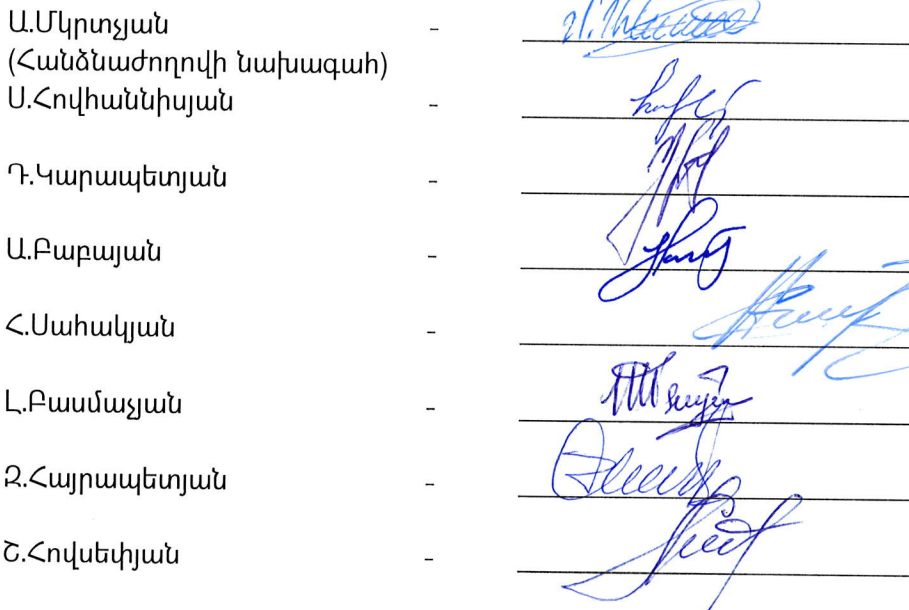 Ա.Մկրտչյան -
(Հանձնաժողովի նախագահ)
Ս.Հովհաննիսյան -
Դ.Կարապետյան -
Ա.Բաբայան -
Հ.Սահակյան -
Լ.Բասմաչյան -
Զ.Հայրապետյան -
Շ.Հովսեփյան -